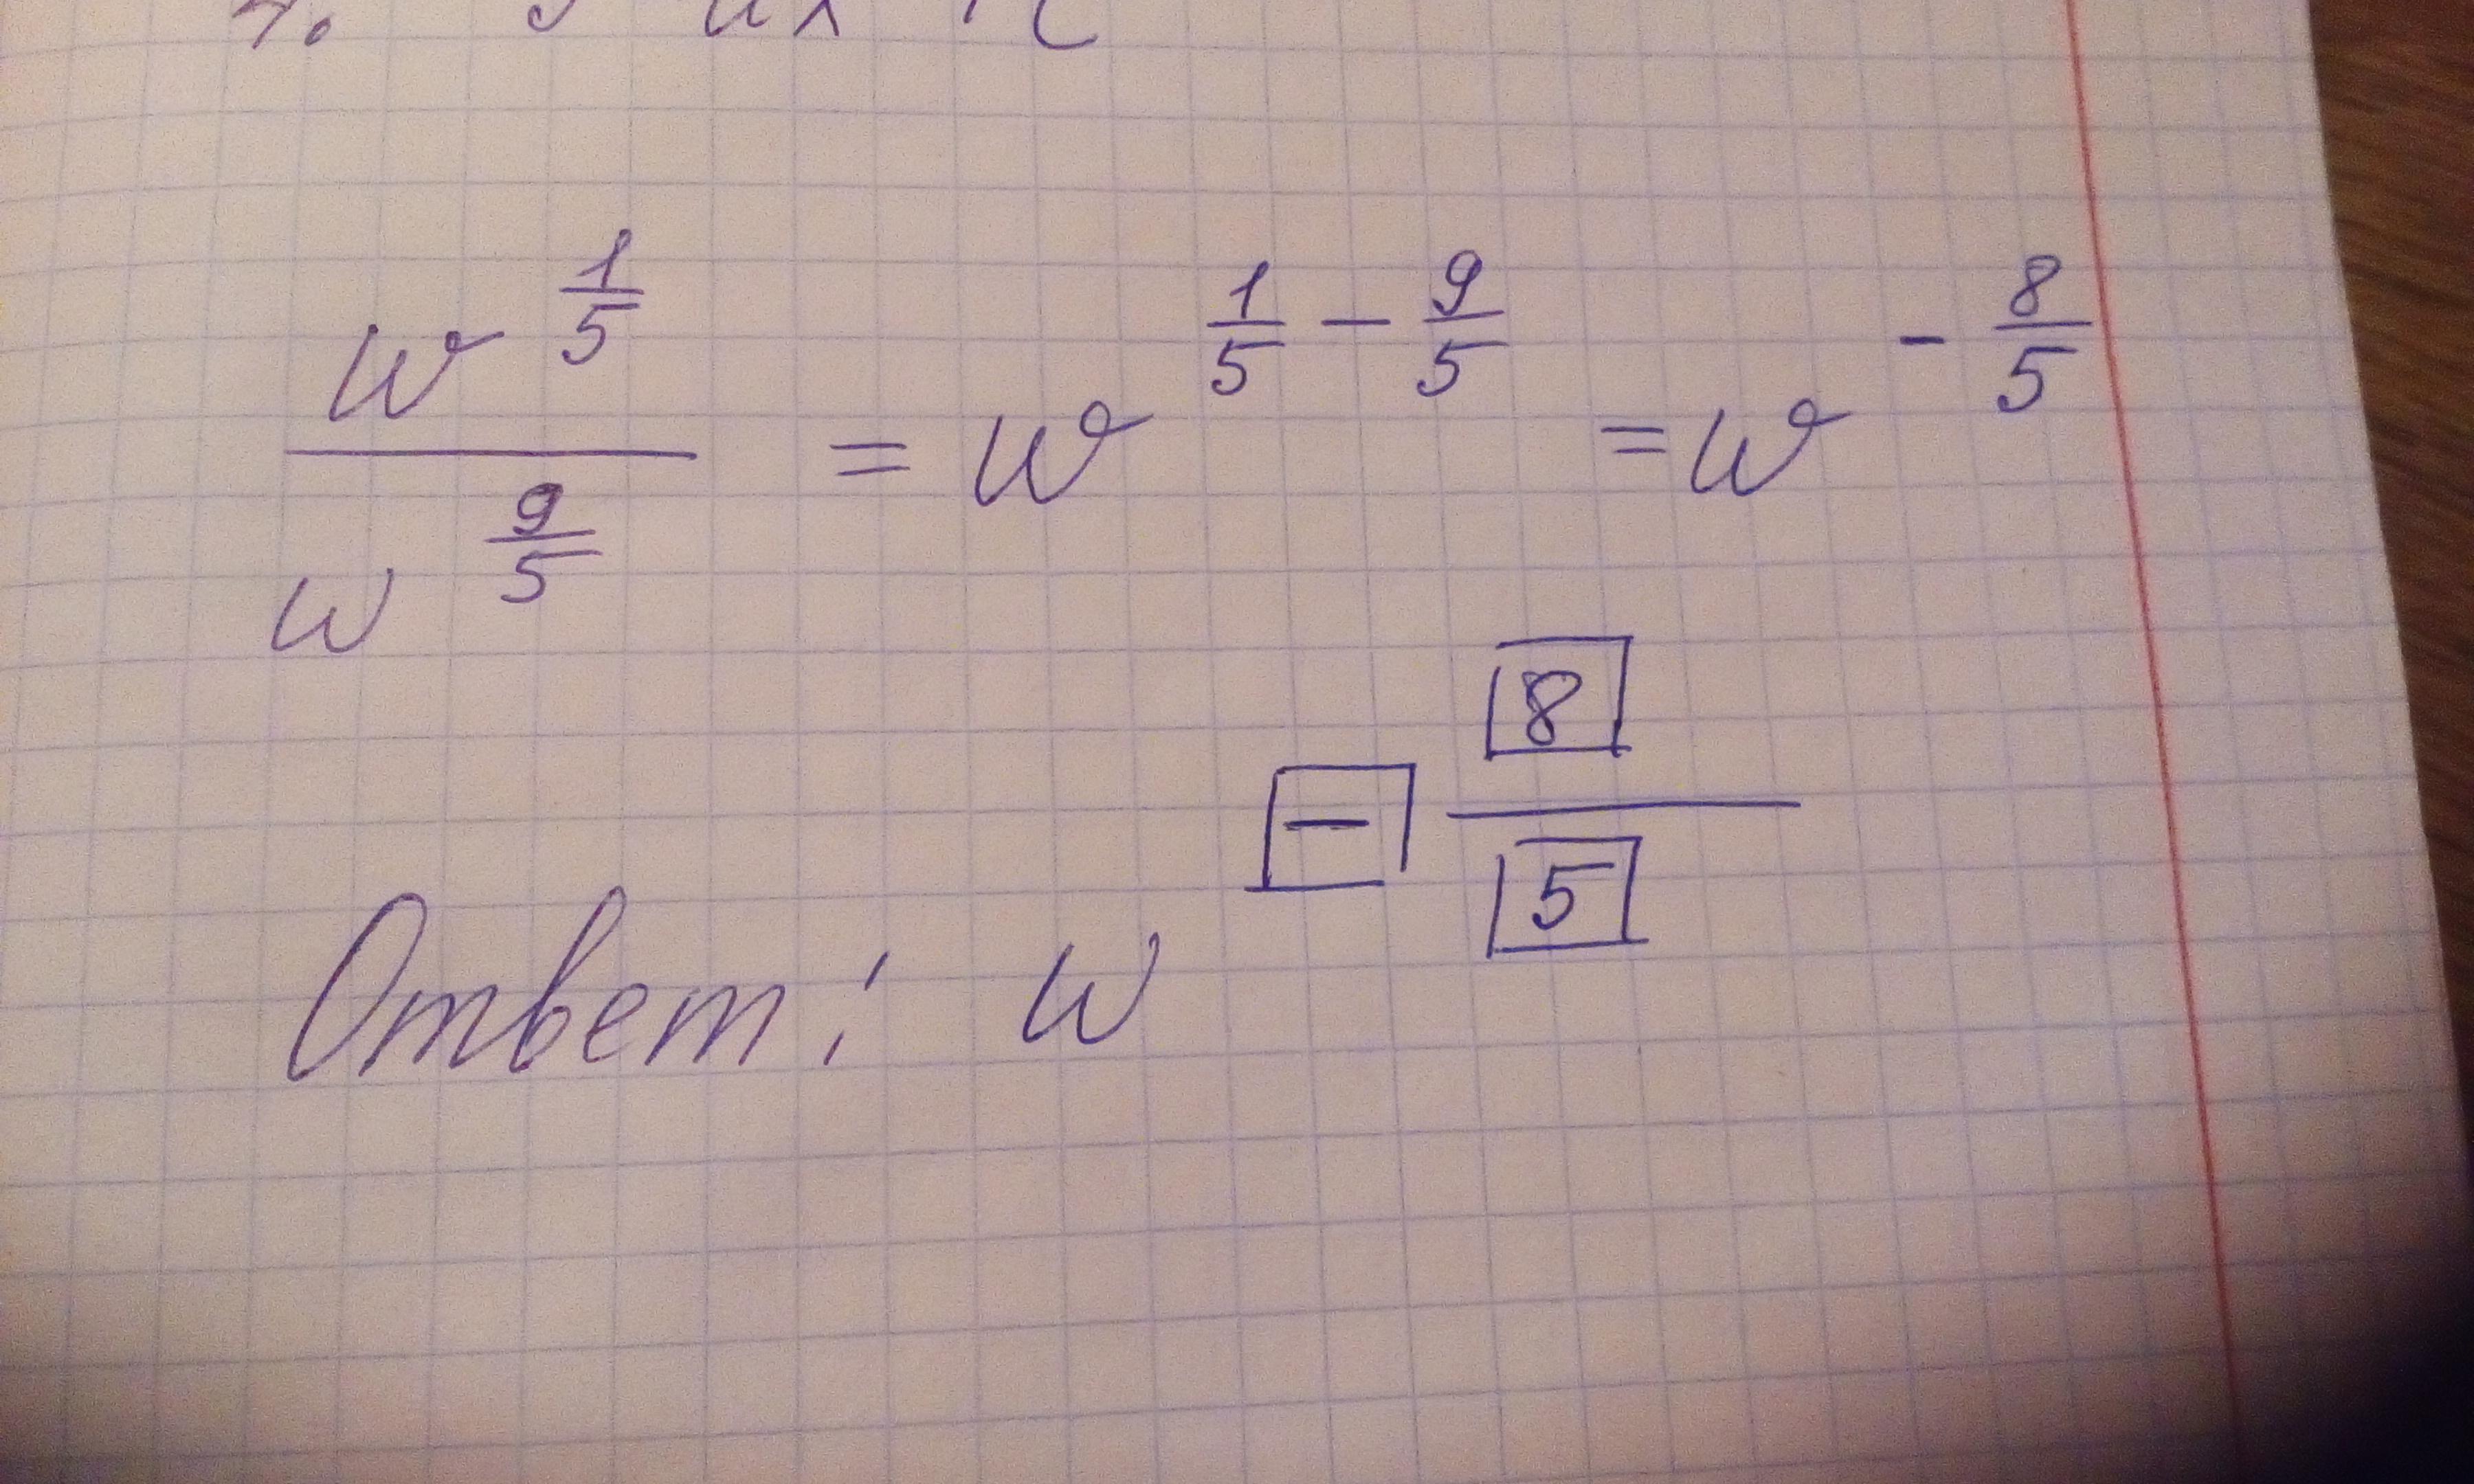 w^(1/5) / w^(9/5) = w^(1/5 − 9/5) = w^(−8/5)
Ответ: w^(− 8/5)